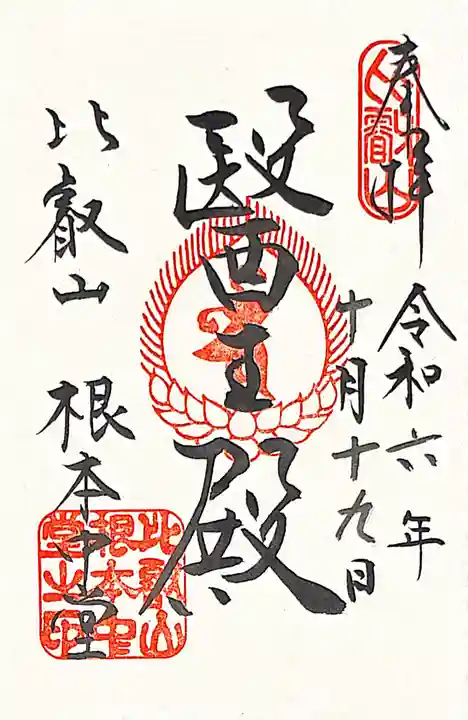 奉拝
令和六年
十月十九日
醫王殿
比叡山 根本中堂
比叡山
比叡山
根本中
堂之印